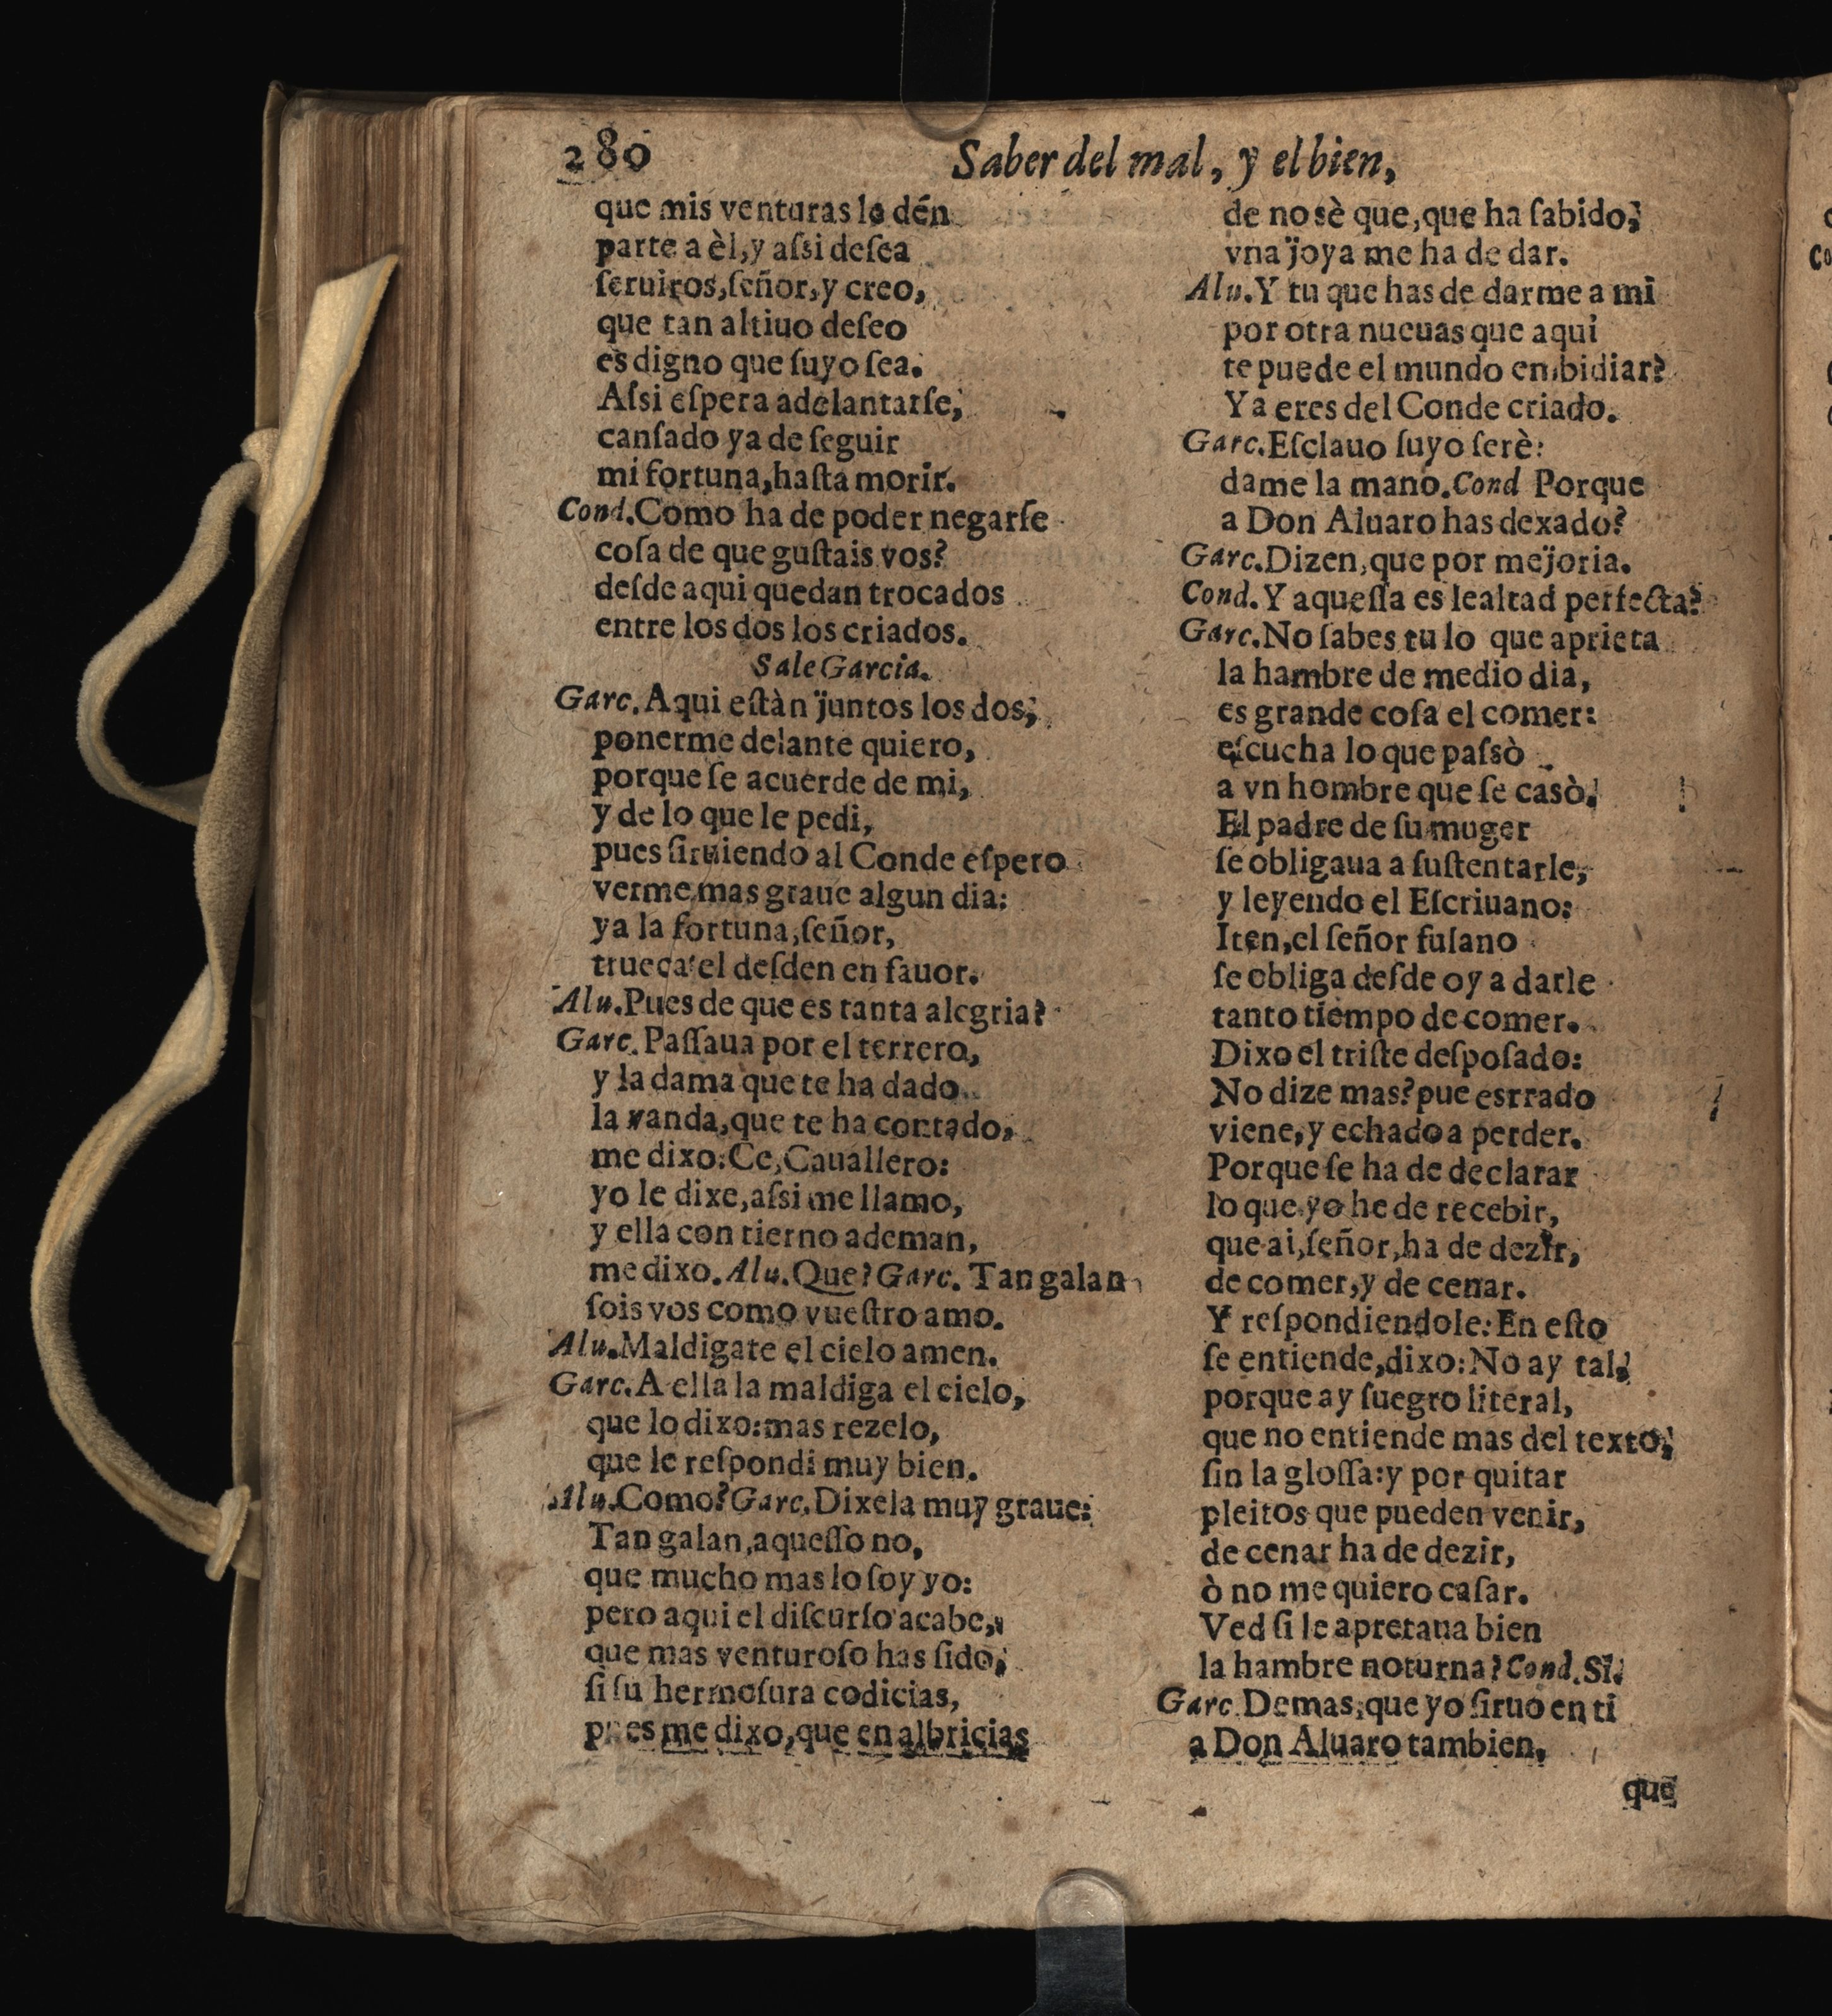 280
Saber del mal, y el bien,
que mis venturas le dén
parte a èl, y aſsi deſea
ſeruiros, ſeñor, y creo,
que tan altiuo deſeo
es digno que ſuyo ſea.
Aſsi eſpera adelantarſe,
canſado ya de ſeguir
mi fortuna, haſta morir.
Cond. Como ha de poder negarſe
coſa de que guſtais vos?
deſde aqui quedan trocados
entre los dos los criados.
Sale Garcia.
Garc. Aqui eſtàn juntos los dos,
ponerme delante quiero,
porque ſe acuerde de mi,
y de lo que le pedi,
pues ſiruiendo al Conde eſpero
verme mas graue algun dia:
ya la fortuna, ſeñor,
trueca el deſden en fauor.
Alu. Pues de que es tanta alegria?
Garc. Paſſaua por el terrero,
y la dama que te ha dado
la vanda, que te ha contado,
me dixo: Ce, Cauallero:
yo le dixe, aſsi me llamo,
y ella con tierno ademan,
me dixo. Alu. Que? Garc. Tan galan
ſois vos como vueſtro amo.
Alu. Maldigate el cielo amen.
Garc. A ella la maldiga el cielo,
que lo dixo: mas rezelo,
que le reſpondi muy bien.
Alu. Como? Garc. Dixela muy graue:
Tan galan, aqueſſo no,
que mucho mas lo ſoy yo:
pero aqui el diſcurſo acabe,
que mas venturoſo has ſido,
ſi ſu hermoſura codicias,
pues me dixo, que en albricias
de no sè que, que ha ſabido,
vna joya me ha de dar.
Alu. Y tu que has de darme a mi
por otra nueuas que aqui
te puede el mundo embidiar?
Ya eres del Conde criado.
Garc. Eſclauo ſuyo ſerè:
dame la mano. Cond Porque
a Don Aluaro has dexado?
Garc. Dizen, que por mejoria.
Cond. Y aqueſſa es lealtad perfecta?
Garc. No ſabes tu lo que aprieta
la hambre de medio dia,
es grande coſa el comer:
eſcucha lo que paſsò
a vn hombre que ſe casò.
El padre de ſu muger
ſe obligaua a ſuſtentarle,
y leyendo el Eſcriuano:
Iten, el ſeñor fulano
ſe obliga deſde oy a darle
tanto tiempo de comer.
Dixo el triſte deſpoſado:
No dize mas? pue esrrado
viene, y echado a perder.
Porque ſe ha de declarar
lo que yo he de recebir,
que ai, ſeñor, ha de dezir,
de comer, y de cenar.
Y reſpondiendole: En eſto
ſe entiende, dixo: No ay tal,
porque ay ſuegro literal,
que no entiende mas del texto,
ſin la gloſſa: y por quitar
pleitos que pueden venir,
de cenar ha de dezir,
ò no me quiero caſar.
Ved ſi le apretaua bien
la hambre noturna? Cond. Si.
Garc. Demas, que yo ſiruo en ti
a Don Aluaro tambien,
que